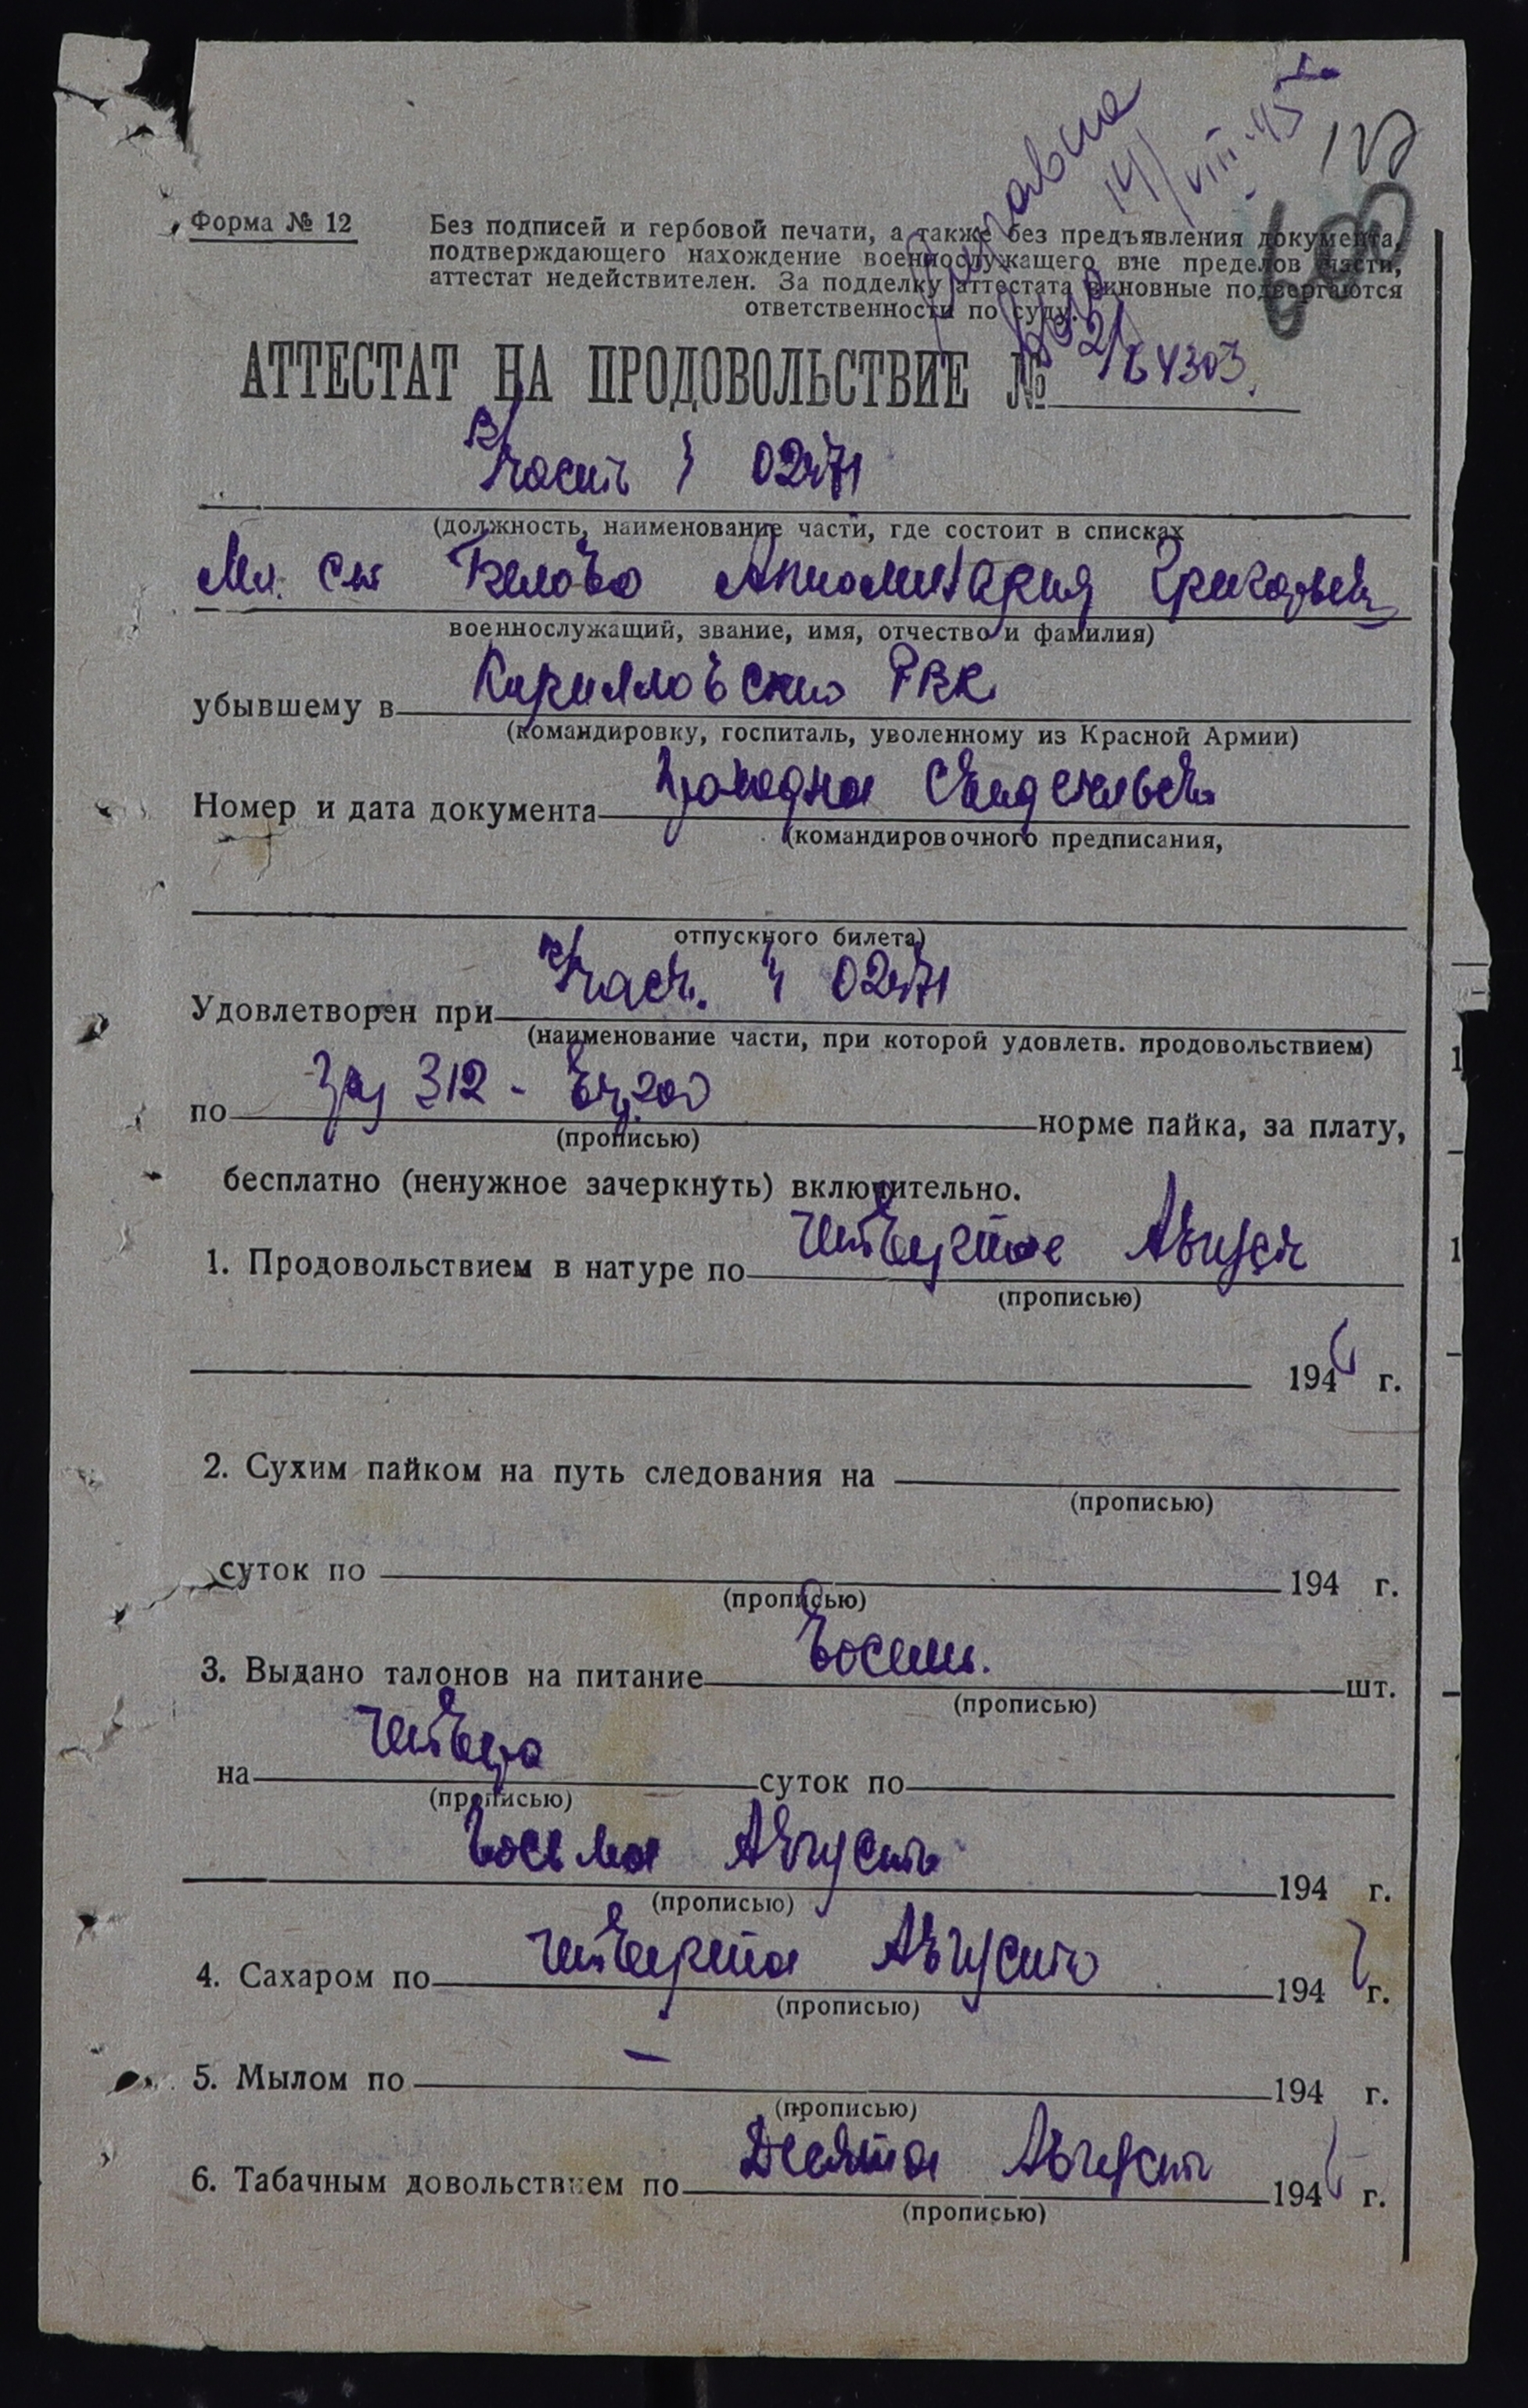 14/VIII-45
127
Форма № 12
Без подписей и гербовой печати, а также без предъявления документа,
подтверждающего нахождение военнослужащего вне пределов части,
аттестат недействителен. За подделку аттестата виновные подвергаются
ответственности по суду.
АТТЕСТАТ НА ПРОДОВОЛЬСТВИЕ № 64303
В/часть 02471
(должность, наименование части, где состоит в списках
Мл. с-т Белова Апполинария Григорьев
военнослужащий, звание, имя, отчество и фамилия)
убывшему в Кирилловский РВК
(командировку, госпиталь, уволенному из Красной Армии)
Номер и дата документа Проходное свидетельств
(командировочного предписания,
отпускного билета)
Удовлетворен при В/част. 02471
(наименование части, при которой удовлетв. продовольствием)
по 312
(прописью)
норме пайка, за плату,
бесплатно (ненужное зачеркнуть) включительно.
1. Продовольствием в натуре по четвертое Август
(прописью)
194 г.
2. Сухим пайком на путь следования на
(прописью)
суток по 194 г.
(прописью)
3. Выдано талонов на питание восемь. шт.
(прописью)
на четверо суток по
(прописью)
восьмое Августа 194 г.
(прописью)
4. Сахаром по четвертое Августа 194 г.
(прописью)
5. Мылом по — 194 г.
(прописью)
6. Табачным довольствием по Десятое Август 194 г.
(прописью)